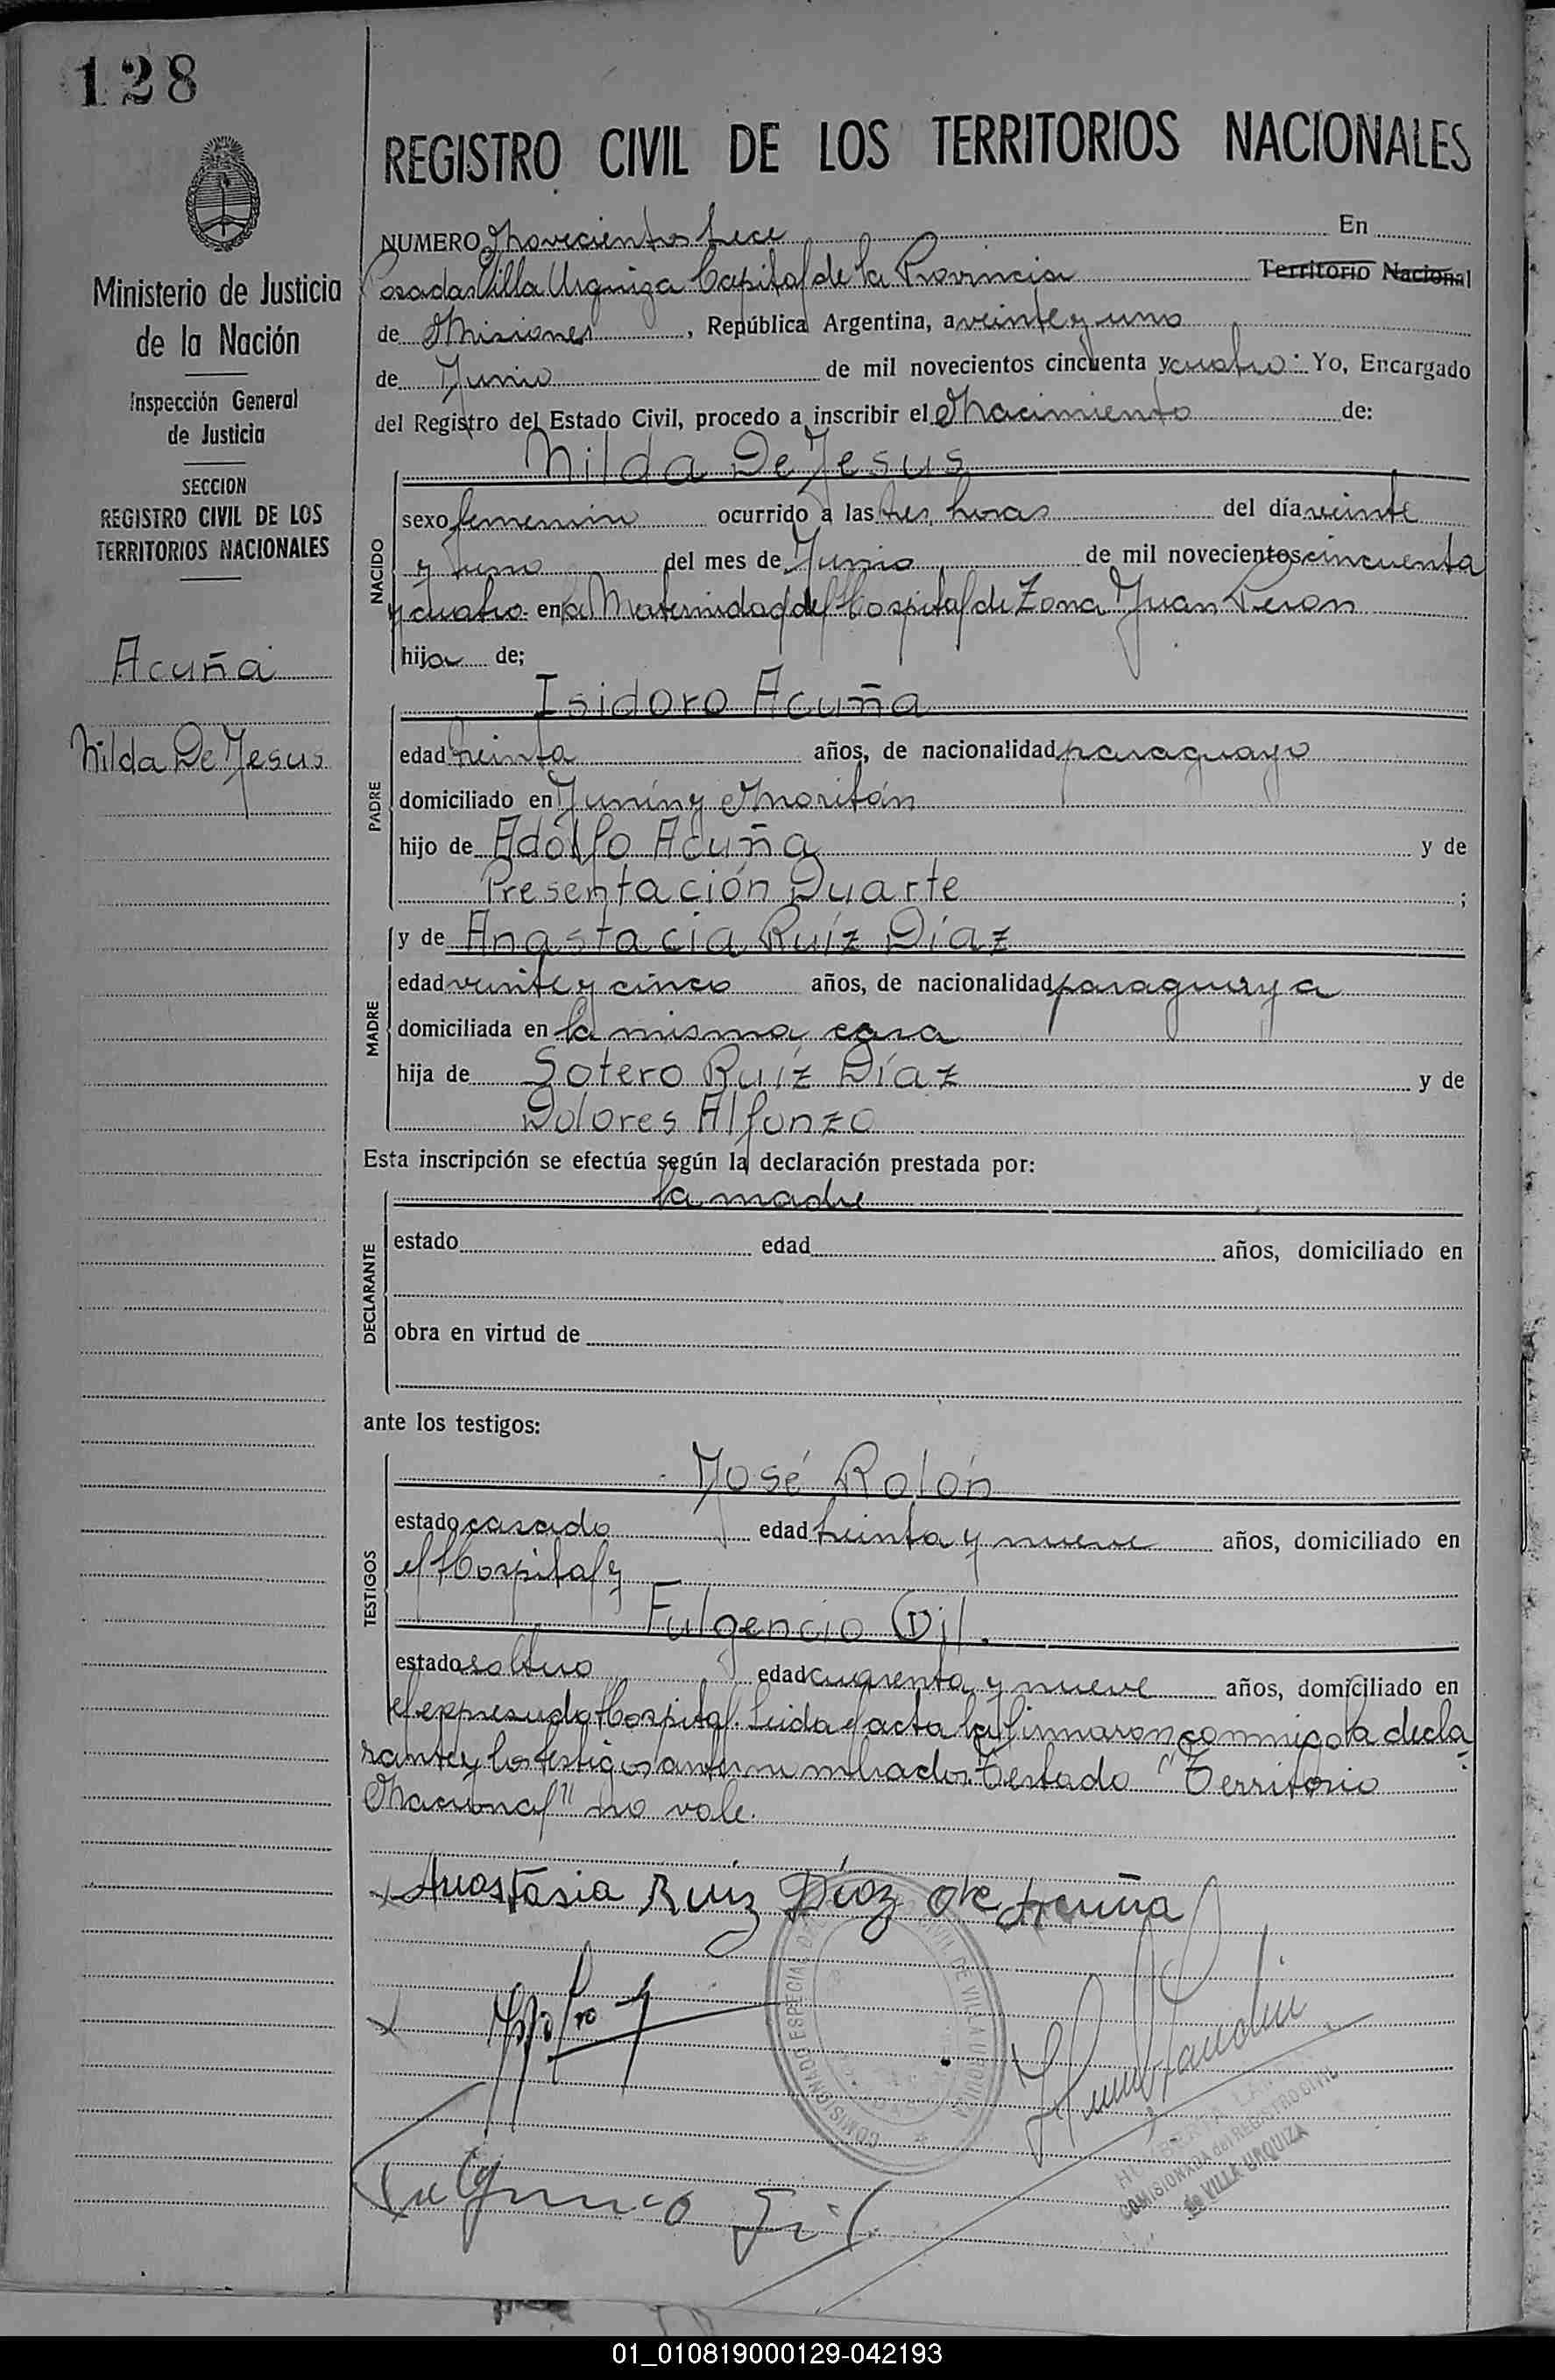 128
REGISTRO CIVIL DE LOS TERRITORIOS NACIONALES
Ministerio de Justicia
de la Nación
Inspección General
de Justicia
SECCION
REGISTRO CIVIL DE LOS
TERRITORIOS NACIONALES
Acuña
Nilda De Jesus
NUMERO Novecientos trece En
Posadas Villa Urquiza Capital de la Provincia Territorio Nacional
de Misiones, República Argentina, a veinte y uno
de Junio de mil novecientos cincuenta y cuatro: Yo, Encargado
del Registro del Estado Civil, procedo a inscribir el Nacimiento de:
Nilda De Jesus
NACIDO
sexo femenino ocurrido a las tres horas del día veinte
y uno del mes de Junio de mil novecientos cincuenta
y cuatro en la Maternidad del Hospital de Zona Juan Peron
hija de;
Isidoro Acuña
PADRE
edad treinta años, de nacionalidad paraguayo
domiciliado en Junín y
hijo de Adolfo Acuña y de
Presentación Duarte ;
y de Anastacia Ruíz Díaz
MADRE
edad veinte y cinco años, de nacionalidad paraguaya
domiciliada en la misma casa
hija de Sotero Ruíz Díaz y de
Dolores Alfonzo
Esta inscripción se efectúa según la declaración prestada por:
la madre
DECLARANTE
estado edad años, domiciliado en
obra en virtud de
ante los testigos:
José Rolón
TESTIGOS
estado casado edad treinta y nueve años, domiciliado en
el Hospital y
Fulgencio Gil.
estado soltero edad cuarenta y nueve años, domiciliado en
el expresado Hospital. Leida el acta la firmaron conmigo la decla
rante y los testigos antes nombrados. Testado "Territorio
Nacional" no vale.
Anastasia Ruíz Díaz de Acuña
Fulgencio Gil
COMISIONADO ESPECIAL CIVIL DE VILLA URQUIZA
COMISIONADA del REGISTRO CIVIL
de VILLA URQUIZA
01_010819000129-042193